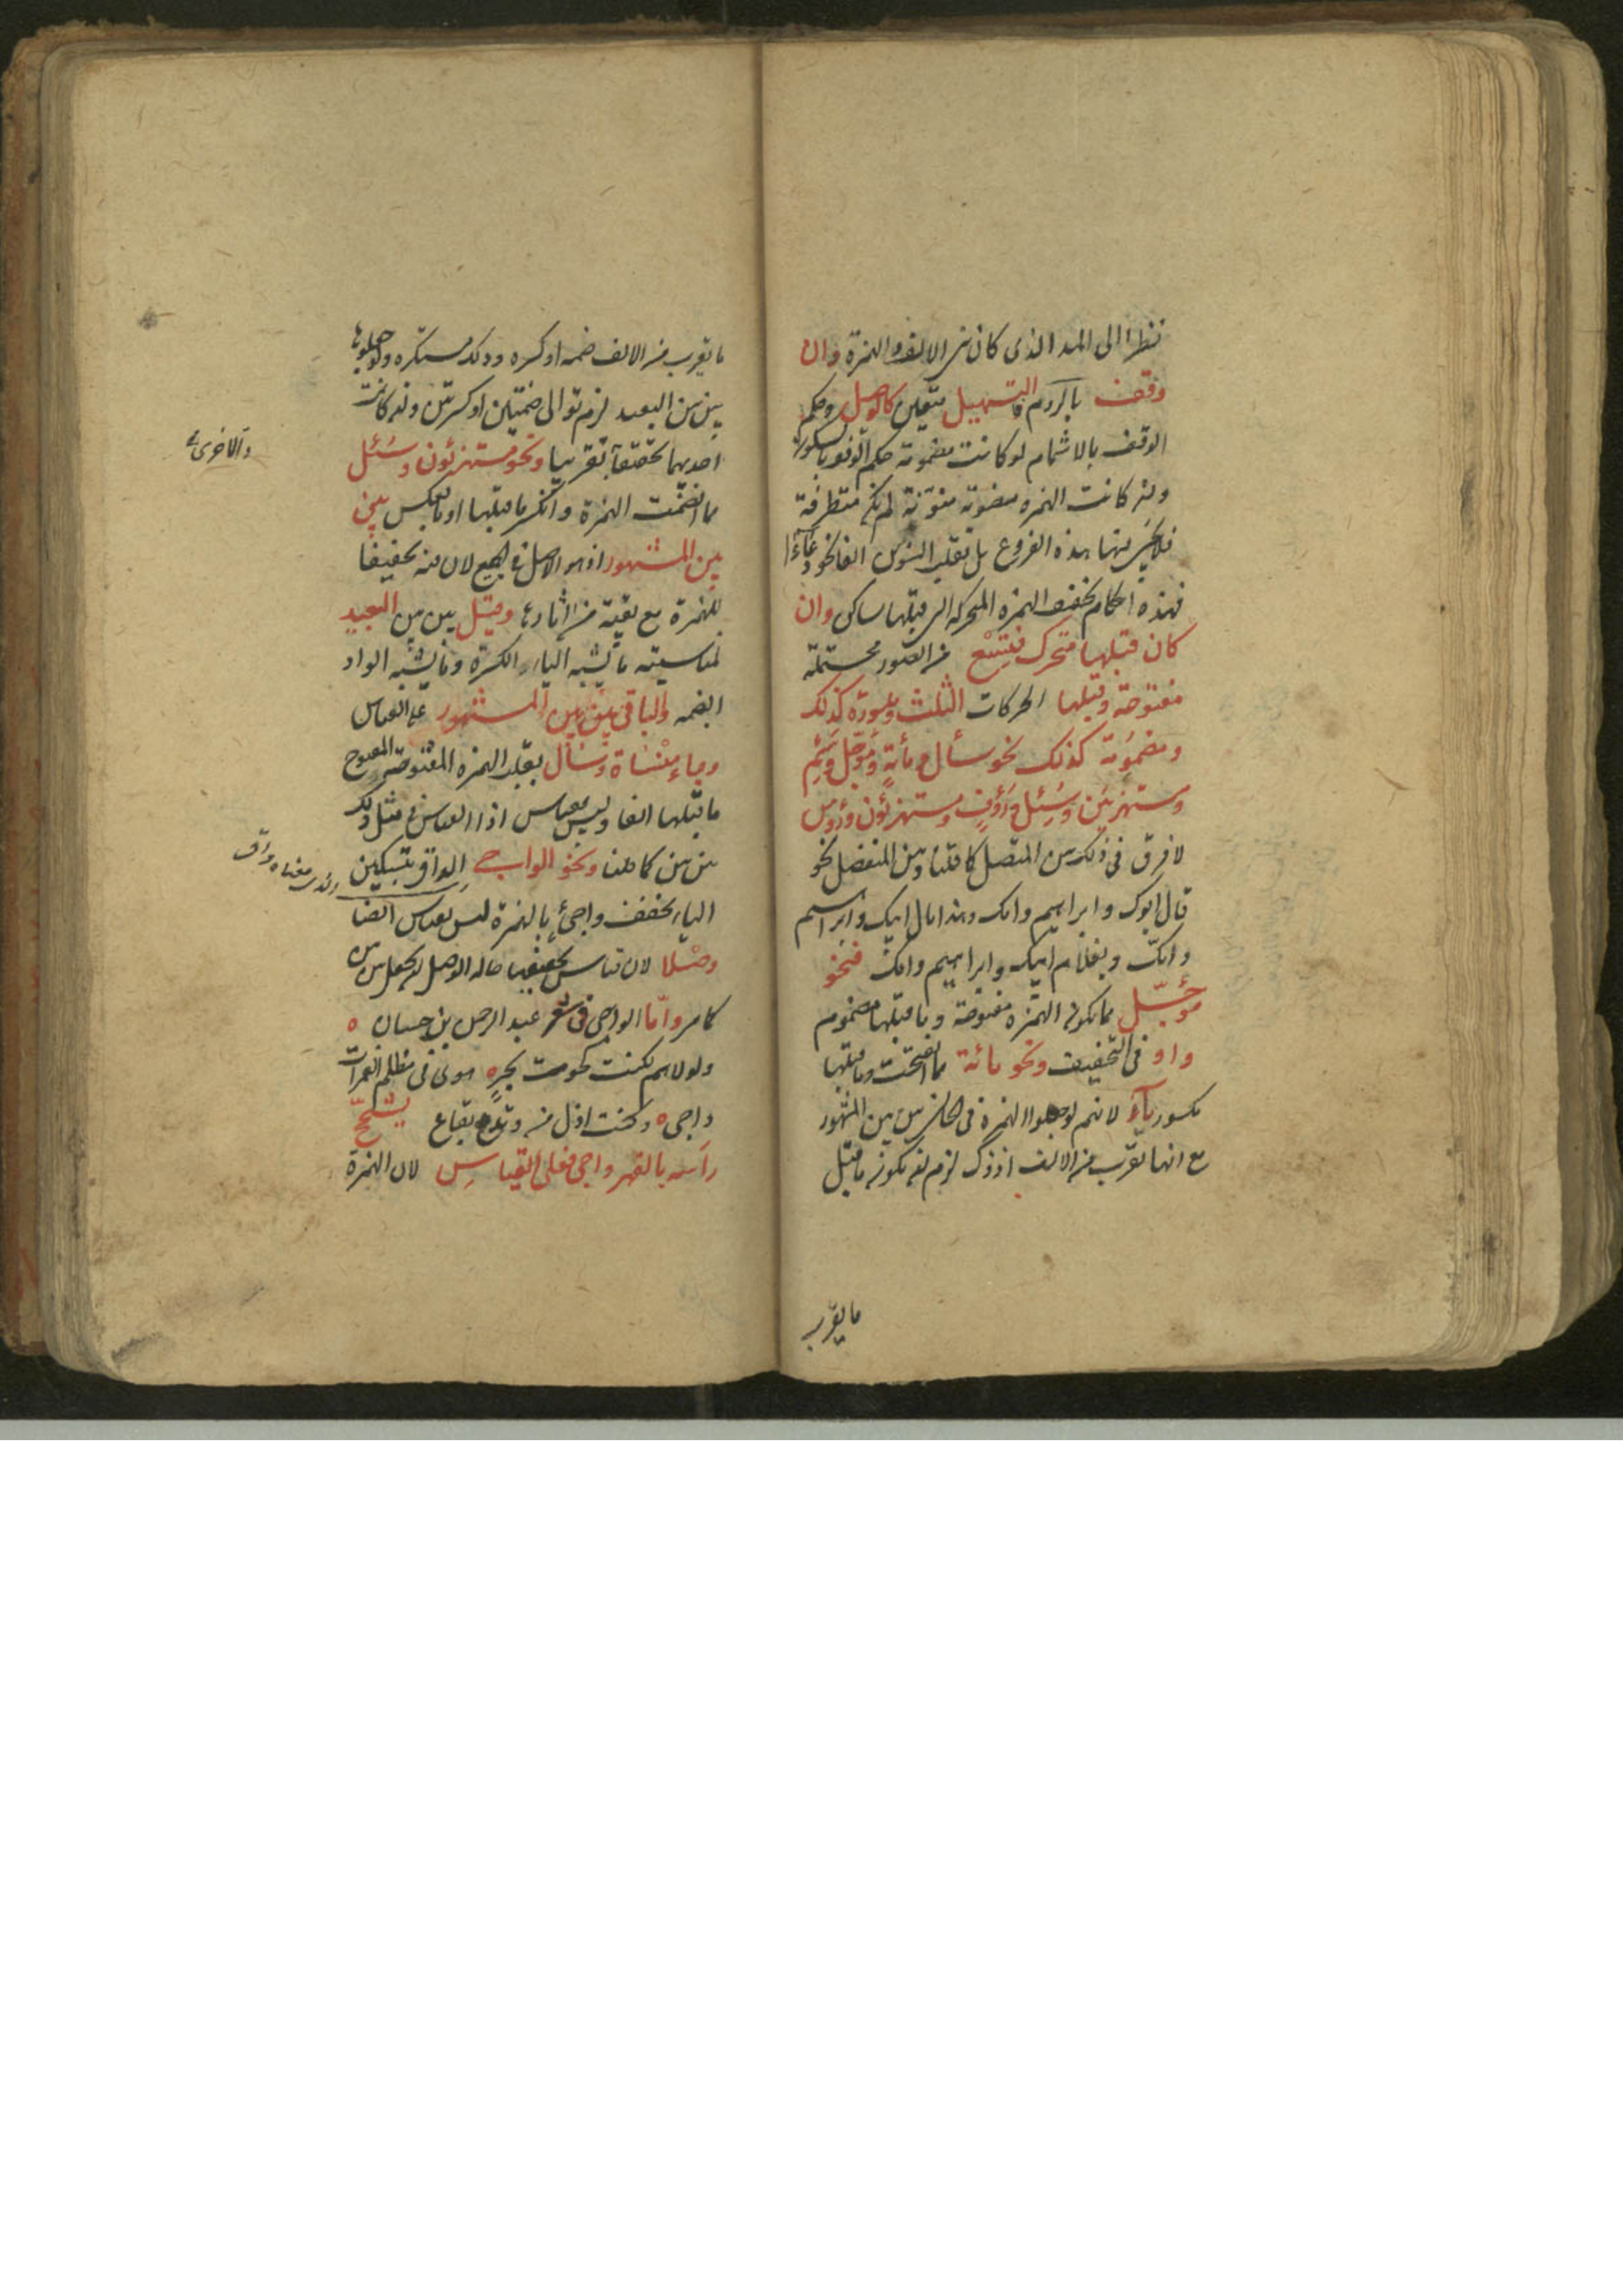 نظرا الى المد الذى كان من الالف والهمزة وان
وقف بالروم فالتسهيل متعين كالوصل وحكم
الوقف بالاشمام لو كانت مضمومة حكم الوقف بالسكون
وان كانت الهمزه منونة لم تكن متطرفة
فلا يجئ فيها هذه الفروع بل تقلب التنوين الفا نحو دعاءا
فهذه احكام تخفيف الهمزه المتحركه التى قبلها ساكن وان
كان قبلها متحرك فتسع من الصور محتملة
مفتوحة وقبلها الحركات الثلث ومكسورة كذلك
ومضمومة كذلك نحو سأل ومائة ومؤجل وسئم
ومستهزئين وسئل ورؤف ومستهزئون ورؤس
لا فرق فى ذلك بين المتصل كما قلنا وبين المنفصل نحو
قال ابوك وابراهيم وامك وهذا مال ابيك وابراهيم
وامك وبغلام ابيك وابراهيم وامك فنحو
مؤجل مما يكون الهمزه مفتوحة وما قبلها مضموم
واو فى التخفيف ونحو مائة مما انفتحت وما قبلها
مكسور ياء لانهم لو جعلوا الهمزة فى الحالين بين بين المشهور
مع انها تقرب من الالف اذ ذاك لزم ان يكون ما قبل
ما يقرب
ما يقرب من الالف ضمه او كسره وذلك مستكره ولو جعلوها
بين بين البعيد لزم توالى ضمتين او كسرتين وان كانت
احديهما تحقيقا تقريبا ونحو مستهزئون وسئل
والاخرى
مما انضمت الهمزة وانكسر ما قبلها او بالعكس بين
بين المشهور اذ هو الاصل فى الجميع لان فيه تخفيفا
للهمزة مع بقية من اثارها وقيل بين بين البعيد
لمناسبته ما يشبه الياء الكسرة وما يشبه الواو
الضمه والباقى بين بين المشهور على القياس
وجاء منساة وسال بقلب الهمزه المفتوحة المفتوح
ما قبلها الفا وليس بقياس اذ القياس فى مثل ذلك
بين بين كما قلنا ونحو الواجى الداق بتسكين
الياء مخفف واجئ بالهمزة ليس بقياس ايضا
وصلا لان قياس تخفيفها حاله الوصل ان يجعل بين بين
كما مر واما الواجى فى شعر عبد الرحمن بن حسان
ولولاهم لكنت كحوت بحر هوى فى مظلم الغمرات
داجى وكنت اذل من وتد بقاع يشجج
راسه بالفهر واجى فعلى القياس لان الهمزة